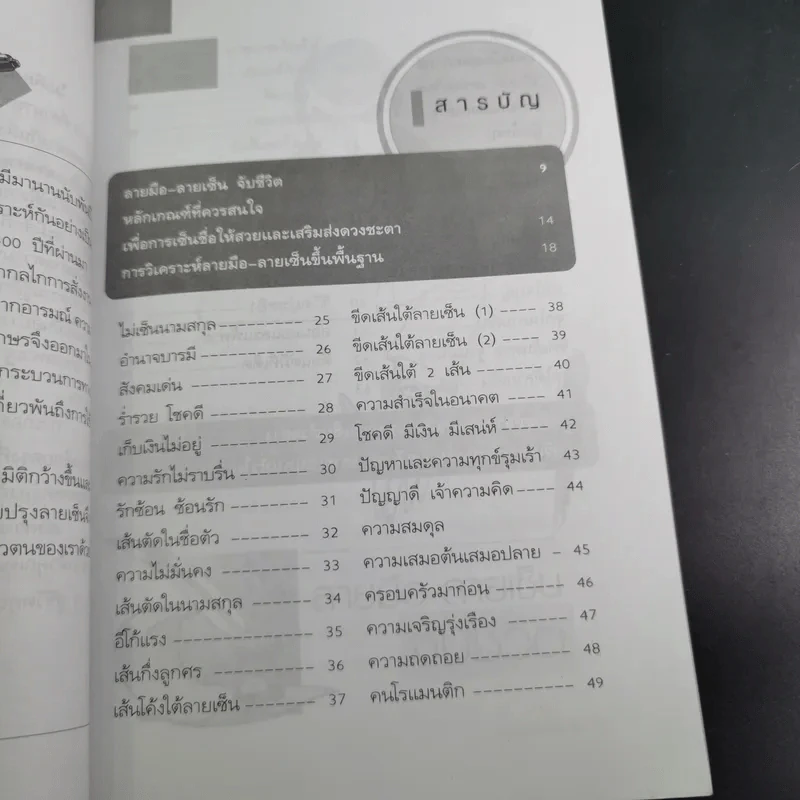 สารบัญ
ลายมือ-ลายเซ็น จับชีวิต 9
หลักเกณฑ์ที่ควรสนใจ
เพื่อการเซ็นชื่อให้สวยและเสริมส่งดวงชะตา 14
การวิเคราะห์ลายมือ-ลายเซ็นขั้นพื้นฐาน 18
ไม่เซ็นนามสกุล 25
อำนาจบารมี 26
สังคมเด่น 27
ร่ำรวย โชคดี 28
เก็บเงินไม่อยู่ 29
ความรักไม่ราบรื่น 30
รักซ้อน ซ้อนรัก 31
เส้นตัดในชื่อตัว 32
ความไม่มั่นคง 33
เส้นตัดในนามสกุล 34
อีโก้แรง 35
เส้นกึ่งลูกศร 36
เส้นโค้งใต้ลายเซ็น 37
ขีดเส้นใต้ลายเซ็น (1) ---- 38
ขีดเส้นใต้ลายเซ็น (2) ---- 39
ขีดเส้นใต้ 2 เส้น 40
ความสำเร็จในอนาคต 41
โชคดี มีเงิน มีเสน่ห์ 42
ปัญหาและความทุกข์รุมเร้า 43
ปัญญาดี เจ้าความคิด---- 44
ความสมดุล
ความเสมอต้นเสมอปลาย - 45
ครอบครัวมาก่อน 46
ความเจริญรุ่งเรือง 47
ความถดถอย 48
คนโรแมนติก 49